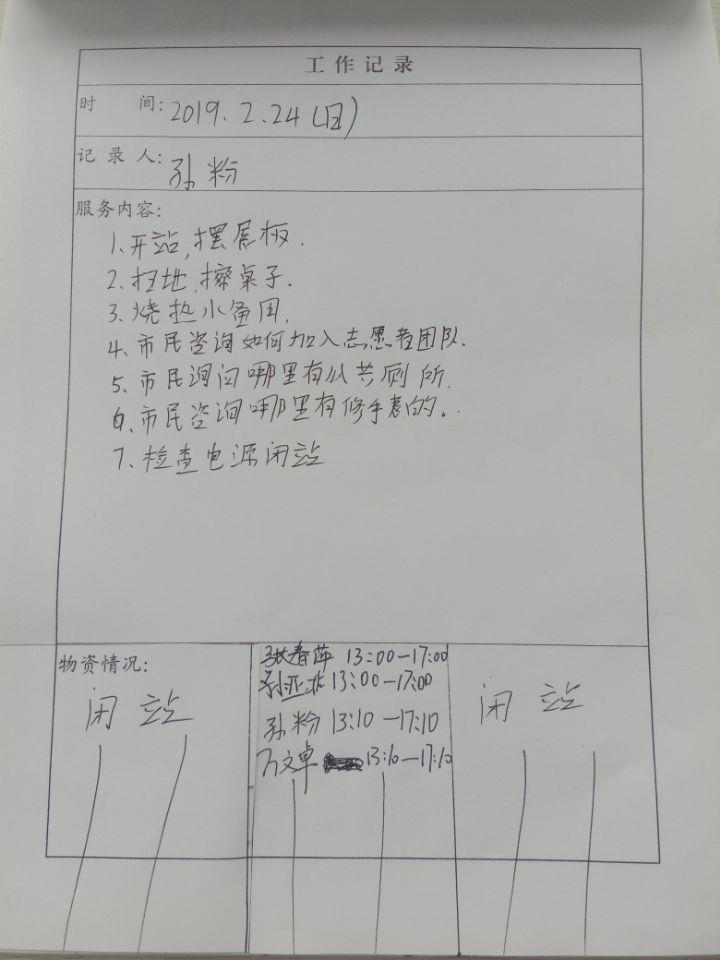 工作记录
时 间: 2019.2.24(日)
记录人: 孙粉
服务内容:
1、开站,摆展板.
2、扫地,擦桌子.
3、烧热水备用.
4、市民咨询如何加入志愿者团队.
5、市民询问哪里有公共厕所.
6、市民咨询哪里有修手表的.
7、检查电源闭站
物资情况:
闭站
张春萍 13:00-17:00
孙亚非 13:00-17:00
孙粉 13:10-17:10
万文卓 13:10-17:10
闭站